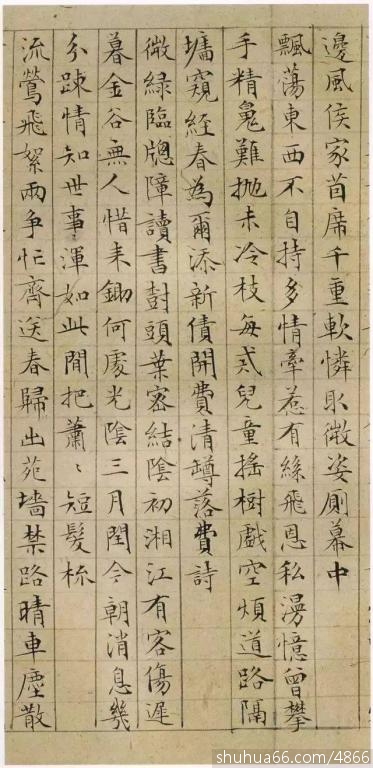 邊風侯家茵席千重軟憐取微姿廁幕中
飄蕩東西不自持多情牽惹有絲飛恩私漫憶曾攀
手精難拋未冷枝每兒童搖樹戲空煩道路隔
墻窺經春為爾添新債開費清罇落費詩
微綠臨牕障讀書頭葉密結陰初湘江有客傷遲
暮金谷無人惜耒鋤何處光陰三月閏今朝消息幾
分踈情知世事渾如此閒把蕭〻短髮梳
流鶯飛絮兩爭忙齊送春歸出苑墻禁路晴車塵散
shuhua66.com/4866